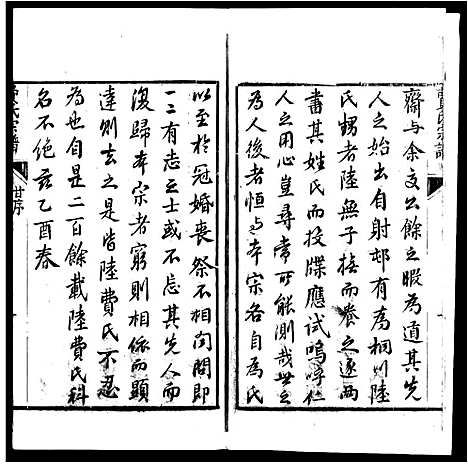 齋與余交公餘之暇為道其先
人之始出自射邨有為桐川陸
氏甥者陸無子撫而養之遂兩
書其姓氏而投牒應試嗚呼仁
人之用心豈尋常所能測哉世之
為人後者恒與本宗各自為氏
以至於冠婚喪祭不相問聞即
一二有志之士或不忘其先人而
復歸本宗者窮則相依而顯
達則去之是皆陸費氏不忍
為也自是二百餘載陸費氏科
名不絕茲乙酉春